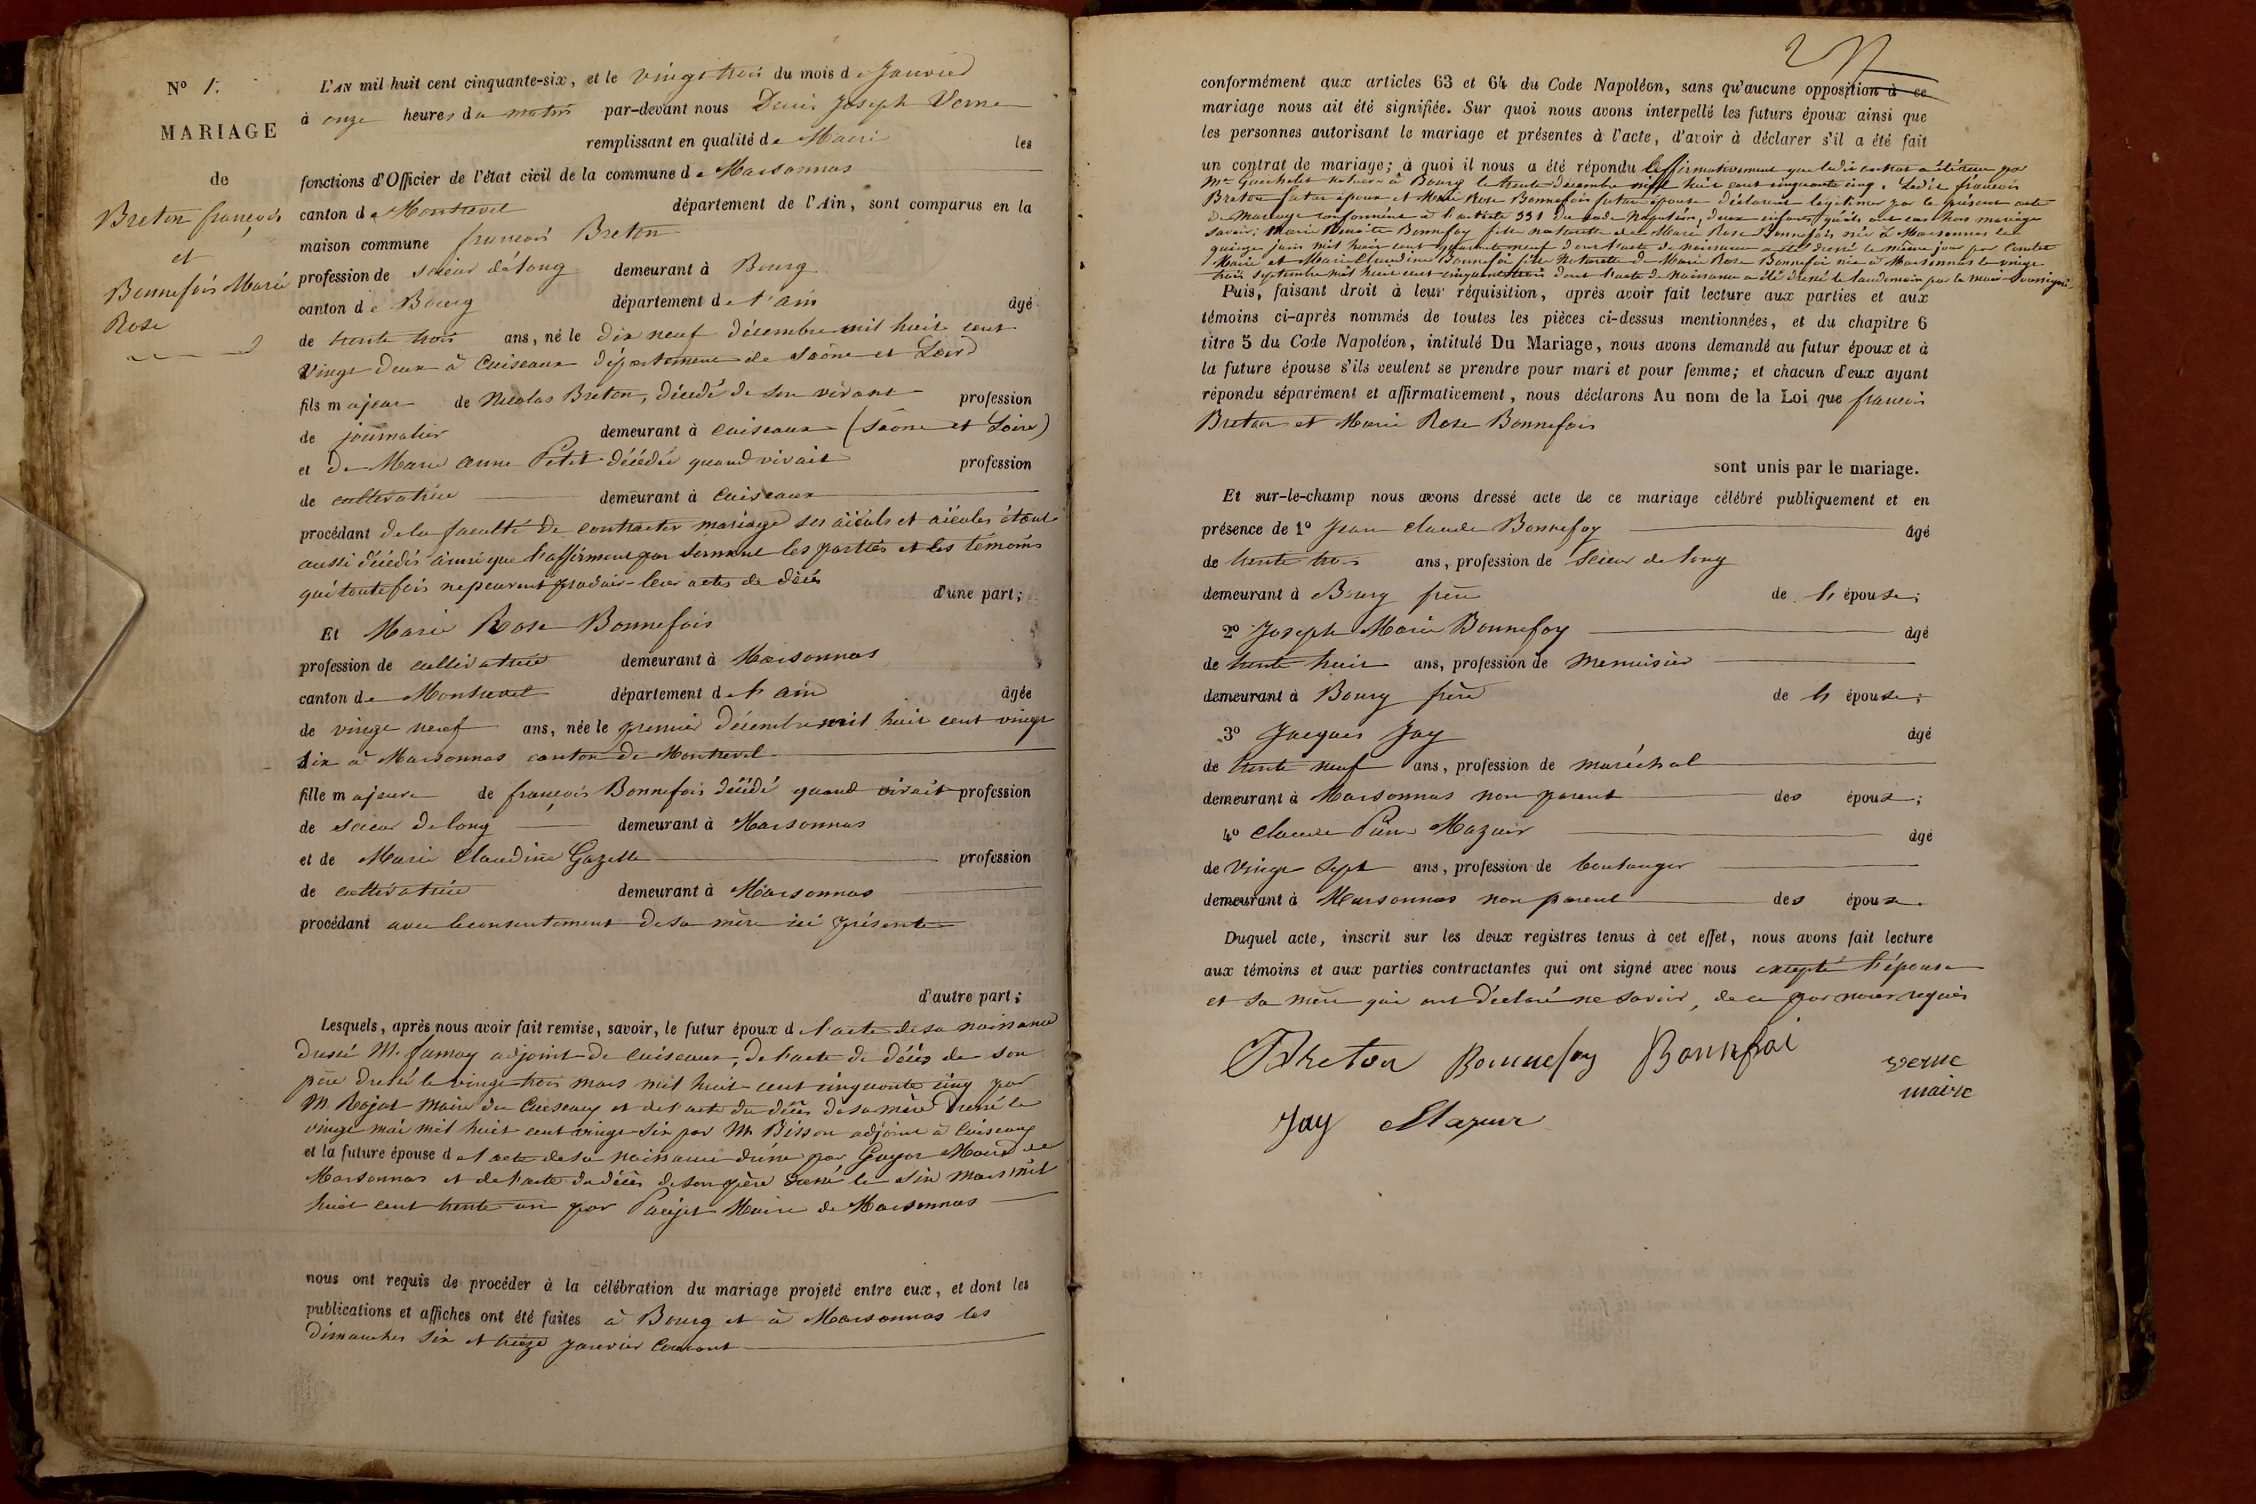 Nº 1.
MARIAGE
de
Breton françois
et
Bonnefois Marie
Rose
L'AN mil huit cent cinquante-six, et le vingt trois du mois de Janvier
à onze heures du matin par-devant nous Denis Joseph Verne
remplissant en qualité de Maire les
fonctions d'Officier de l'état civil de la commune de Marsonnas
canton de Montrevel département de l'Ain, sont comparus en la
maison commune françois Breton
profession de scieur de long demeurant à Bourg
canton de Bourg département de l'ain âgé
de trente trois ans, né le dix neuf décembre mil huit cent
vingt deux à Cuiseaux département de Saône et Loire
fils majeur de Nicolas Breton, décédé de son vivant profession
de journalier demeurant à Cuiseaux (Saône et Loire)
et de Marie anne Petit décédée quand vivait profession
de cultivatrice demeurant à Cuiseaux
procédant de la faculté de contracter mariage ses aïeuls et aïeules étant
aussi décédés ainsi que l'affirment par serment les parties et les témoins
qui toutefois ne peuvent produire leur actes de décès
d'une part;
Et Marie Rose Bonnefois
profession de cultivatrice demeurant à Marsonnas
canton de Montrevel département de l'ain âgée
de vingt neuf ans, née le premier décembre mil huit cent vingt
six à Marsonnas canton de Montrevel
fille majeure de françois Bonnefois décédé quand vivait profession
de scieur de long demeurant à Marsonnas
et de Marie Claudine Gazelle profession
de cultivatrice demeurant à Marsonnas
procédant avec le consentement de sa mère ici présente
d'autre part;
Lesquels, après nous avoir fait remise, savoir, le futur époux de l'acte de sa naissance
dressé M. adjoint de Cuiseaux, de l'acte de décès de son
père dressé le vingt trois mars mil huit cent cinquante cinq par
M. Rojat Maire de Cuiseaux et de l'acte du décès de sa mère dressé le
vingt mai mil huit cent vingt six par M. Bisson adjoint à Cuiseaux
et la future épouse de l'acte de sa naissance dressé par Guyot Maire de
Marsonnas et de l'acte du décès de son père dressé le six mars mil
huit cent trente un par Maire de Marsonnas
nous ont requis de procéder à la célébration du mariage projeté entre eux, et dont les
publications et affiches ont été faites à Bourg et à Marsonnas les
dimanches six et treize janvier courant
conformément aux articles 63 et 64 du Code Napoléon, sans qu'aucune opposition à ce
mariage nous ait été signifiée. Sur quoi nous avons interpellé les futurs époux ainsi que
les personnes autorisant le mariage et présentes à l'acte, d'avoir à déclarer s'il a été fait
un contrat de mariage; à quoi il nous a été répondu affirmativement que ledit contrat a été reçu par
Me notaire à Bourg le trente décembre mil huit cent cinquante cinq. Ledit françois
Breton futur époux et Marie Rose Bonnefois future épouse déclarent légitimer par le présent acte
de Mariage conformément à l'article 331 du code Napoléon, deux enfants qu'ils ont eus hors mariage
savoir; Marie Benoite Bonnefoy fille naturelle de Marie Rose Bonnefois née à Marsonnas le
quinze juin mil huit cent quarante neuf dont l'acte de naissance a été dressé le même jour par
Maire et Marie Claudine Bonnefoi fille naturelle de Marie Rose Bonnefoi née à Marsonnas le vingt
trois septembre mil huit cent cinquante trois dont l'acte de naissance a été dressé le lendemain par le maire soussigné.
Puis, faisant droit à leur réquisition, après avoir fait lecture aux parties et aux
témoins ci-après nommés de toutes les pièces ci-dessus mentionnées, et du chapitre 6
titre 5 du Code Napoléon, intitulé Du Mariage, nous avons demandé au futur époux et à
la future épouse s'ils veulent se prendre pour mari et pour femme; et chacun d'eux ayant
répondu séparément et affirmativement, nous déclarons Au nom de la Loi que françois
Breton et Marie Rose Bonnefois
sont unis par le mariage.
Et sur-le-champ nous avons dressé acte de ce mariage célébré publiquement et en
présence de 1º Jean Claude Bonnefoy âgé
de trente trois ans, profession de scieur de long
demeurant à Bourg frère de l'épouse;
2º Joseph Marie Bonnefoy âgé
de trente huit ans, profession de Menuisier
demeurant à Bourg frère de l'épouse;
3º Jacques Jay âgé
de trente neuf ans, profession de maréchal
demeurant à Marsonnas non parent des époux;
4º Claude Pierre Mazuir âgé
de vingt sept ans, profession de boulanger
demeurant à Marsonnas non parent des époux.
Duquel acte, inscrit sur les deux registres tenus à cet effet, nous avons fait lecture
aux témoins et aux parties contractantes qui ont signé avec nous excepté l'épouse
et sa mère qui ont déclaré ne savoir, de ce par nous requis
Breton Bonnefoy Bonnefoi verne
maire
Jay Mazuir